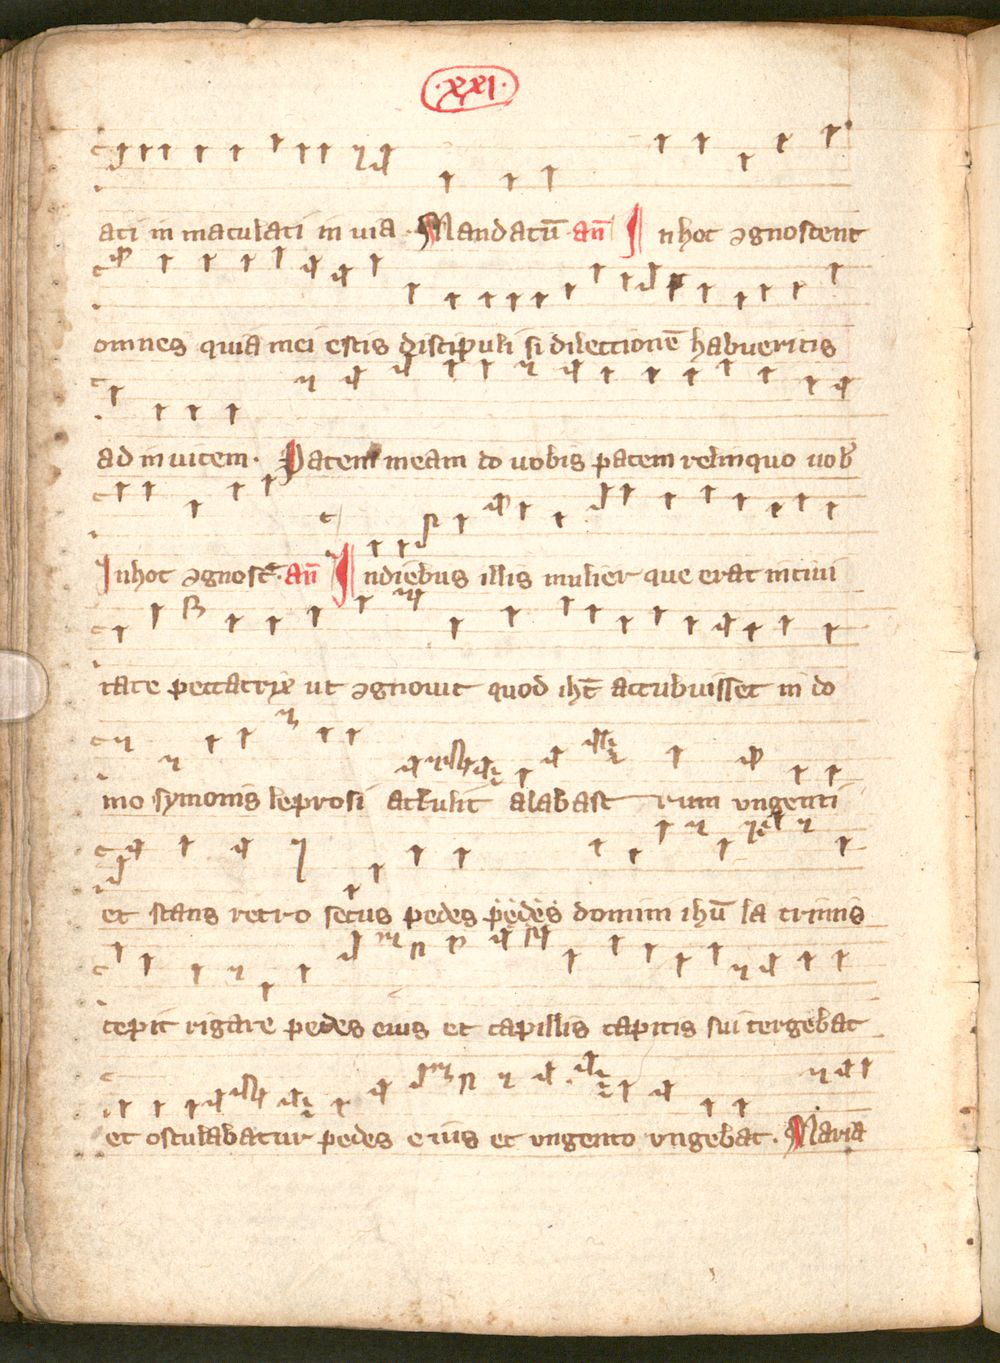 ·xxi·
ati in maculati in via. Mandatū añ In hoc ꝯgnoscent
omnes quia mei estis discipuli si dilectionē habueritis
ad in uicem. Pacem meam do vobis pacem relinquo uob
In hoc ꝯgnosc̄. añ In diebus illis mulier que erat in ciui
tate peccatrix ut ꝯgnouit quod ih̄c accubuisset in do
mo symonis leprosi attulit alabast rum vngenti
et stans retro secus pedes pedes domini ihū la crimis
cepit rigare pedes eius et capillis capitis sui tergebat
et osculabatur pedes eius et vngento vngebat. Maria